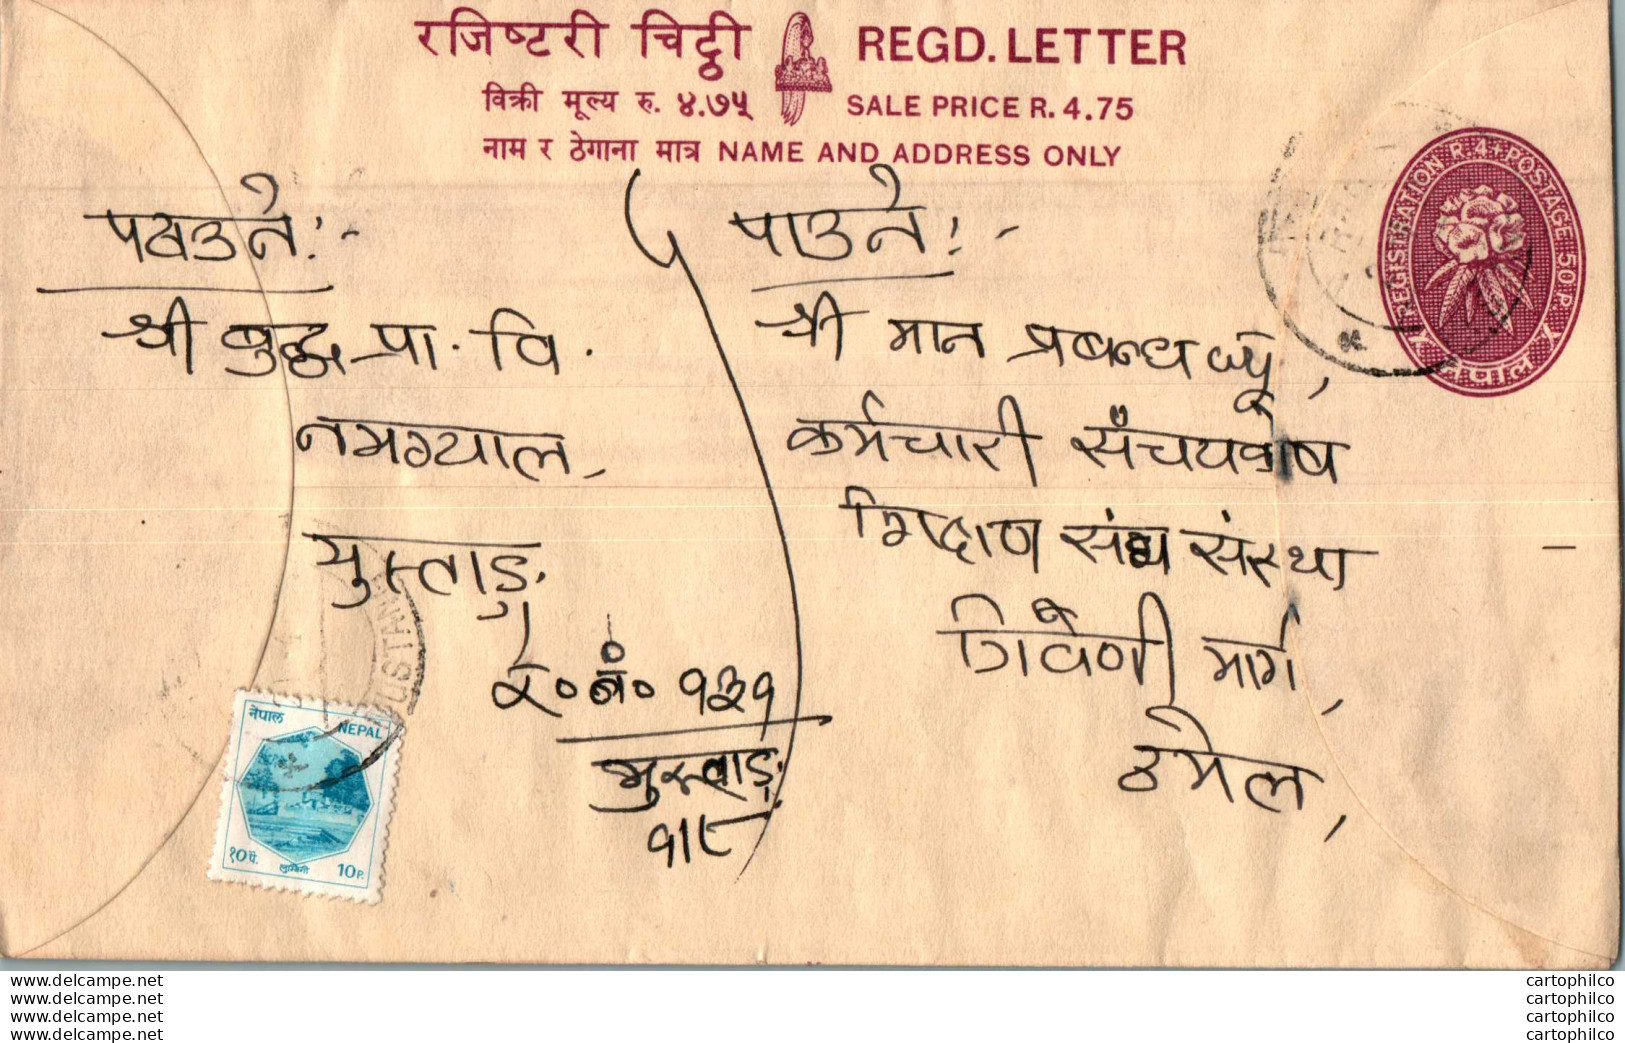 रजिष्टरी चिट्ठी REGD. LETTER
विक्री मूल्य रु. ४.७५ SALE PRICE R. 4.75
नाम र ठेगाना मात्र NAME AND ADDRESS ONLY
REGISTRATION R.4 + POSTAGE 50 P.
नेपाल
पठाउने:-
श्री बुद्ध प्रा. वि.
नमग्याल,
मुस्ताङ,
र.नं. १३१
मुस्ताङ,
पाउने:-
श्री मान प्रबन्धक ज्यू,
कर्मचारी संचयकोष
शिक्षण संघ संस्था
त्रिवेणी मार्ग,
ठमेल,
MUSTANG
नेपाल NEPAL
१० पै. लुम्बिनी 10 P.
www.delcampe.net cartophilco
www.delcampe.net cartophilco
www.delcampe.net cartophilco
www.delcampe.net cartophilco